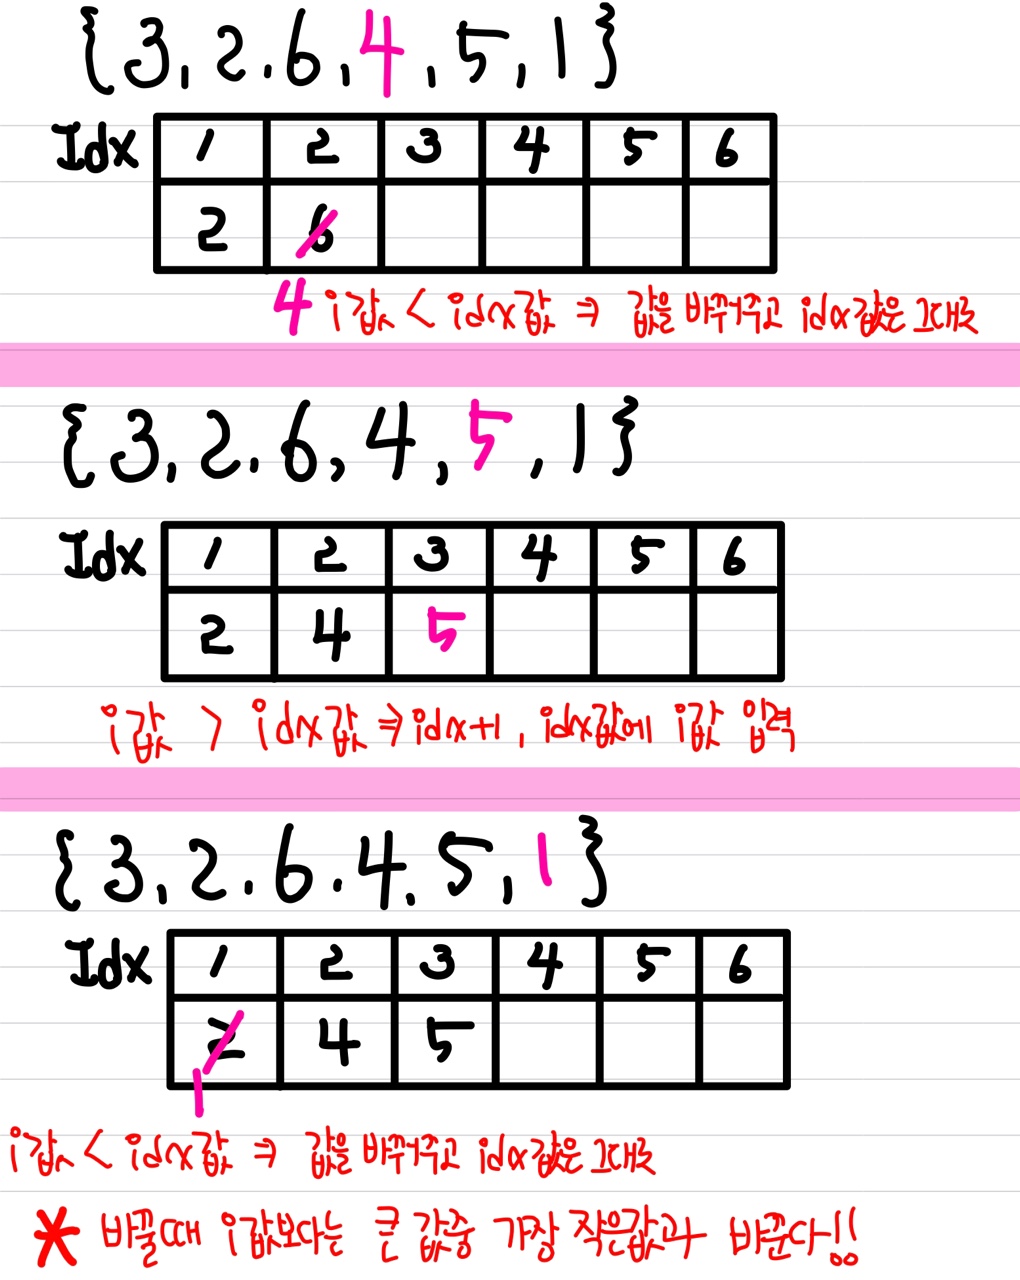 {3, 2. 6, 4, 5, 1}
Idx 1 2 3 4 5 6
2 6
4 i값 < idx값 ⇒ 값을 바꾸어주고 idx값은 그대로
{3, 2. 6, 4, 5, 1}
Idx 1 2 3 4 5 6
2 4 5
i값 > idx값 ⇒ idx+1, idx값에 i값 입력
{3, 2. 6. 4, 5, 1}
Idx 1 2 3 4 5 6
2 4 5
1
i값 < idx값 ⇒ 값을 바꾸어주고 idx값은 그대로
* 바꿀때 i값보다는 큰 값중 가장 작은값과 바꾼다!!